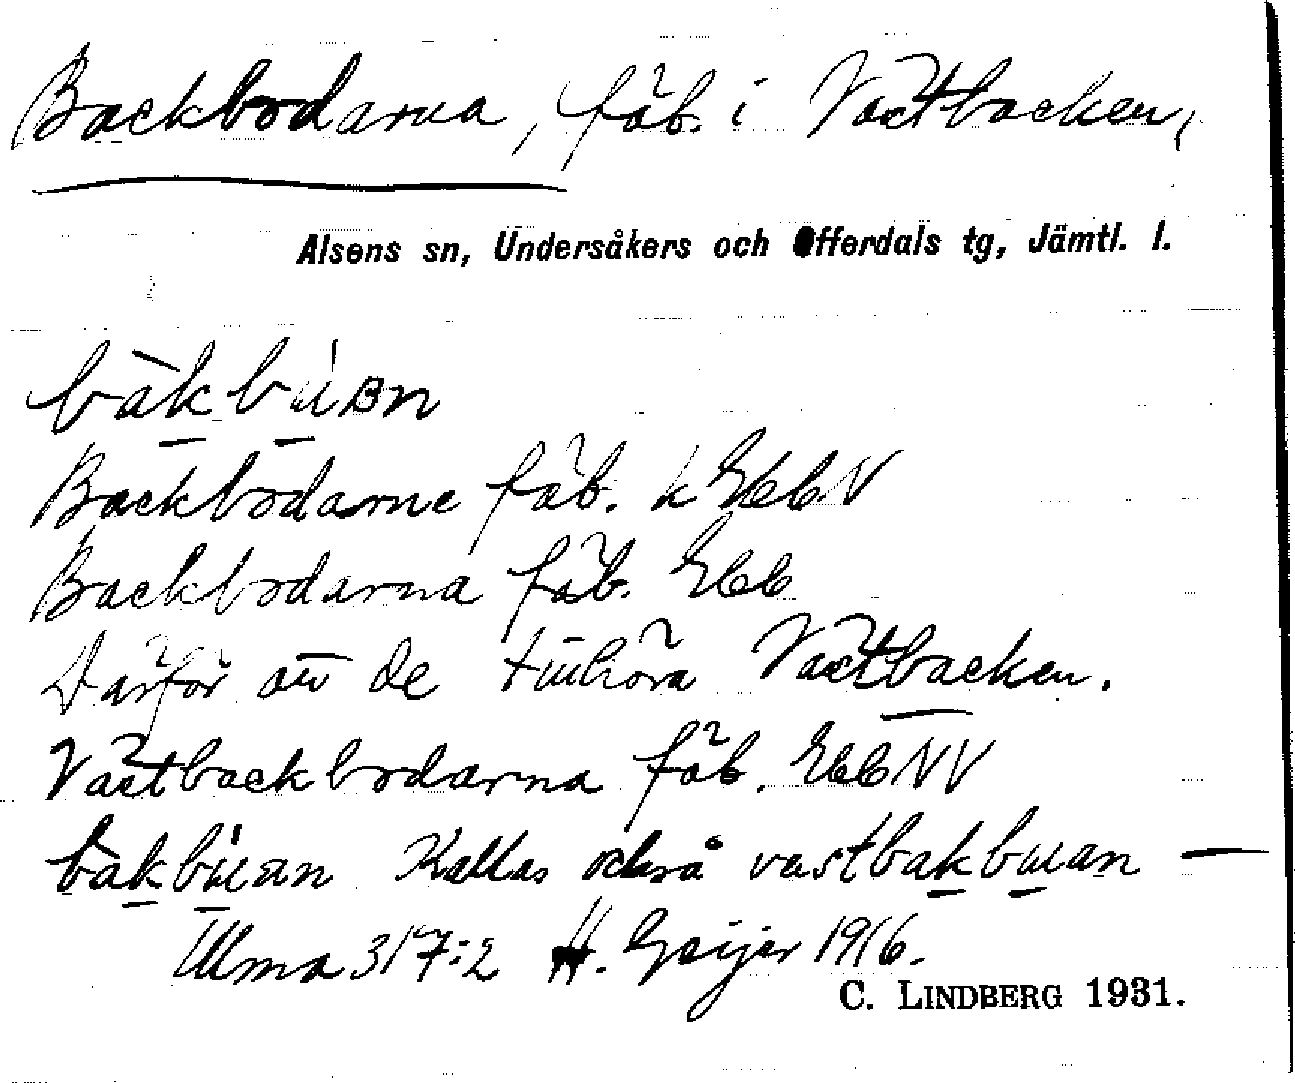 Backbodarna, fäb. i Västbacken,
Alsens sn, Undersåkers och Offerdals tg, Jämtl. l.
bàkbúʙn
Backbodarne fäb. k EbbV
Backbodarna fäb. Ebb
Därför att de tillhöra Västbacken.
Västbackbodarna fäb. Ebb NV
bàkbúan Kallas också vastbakbuan —
Ulma 317:2 H. Geijer 1916.
C. LINDBERG 1931.